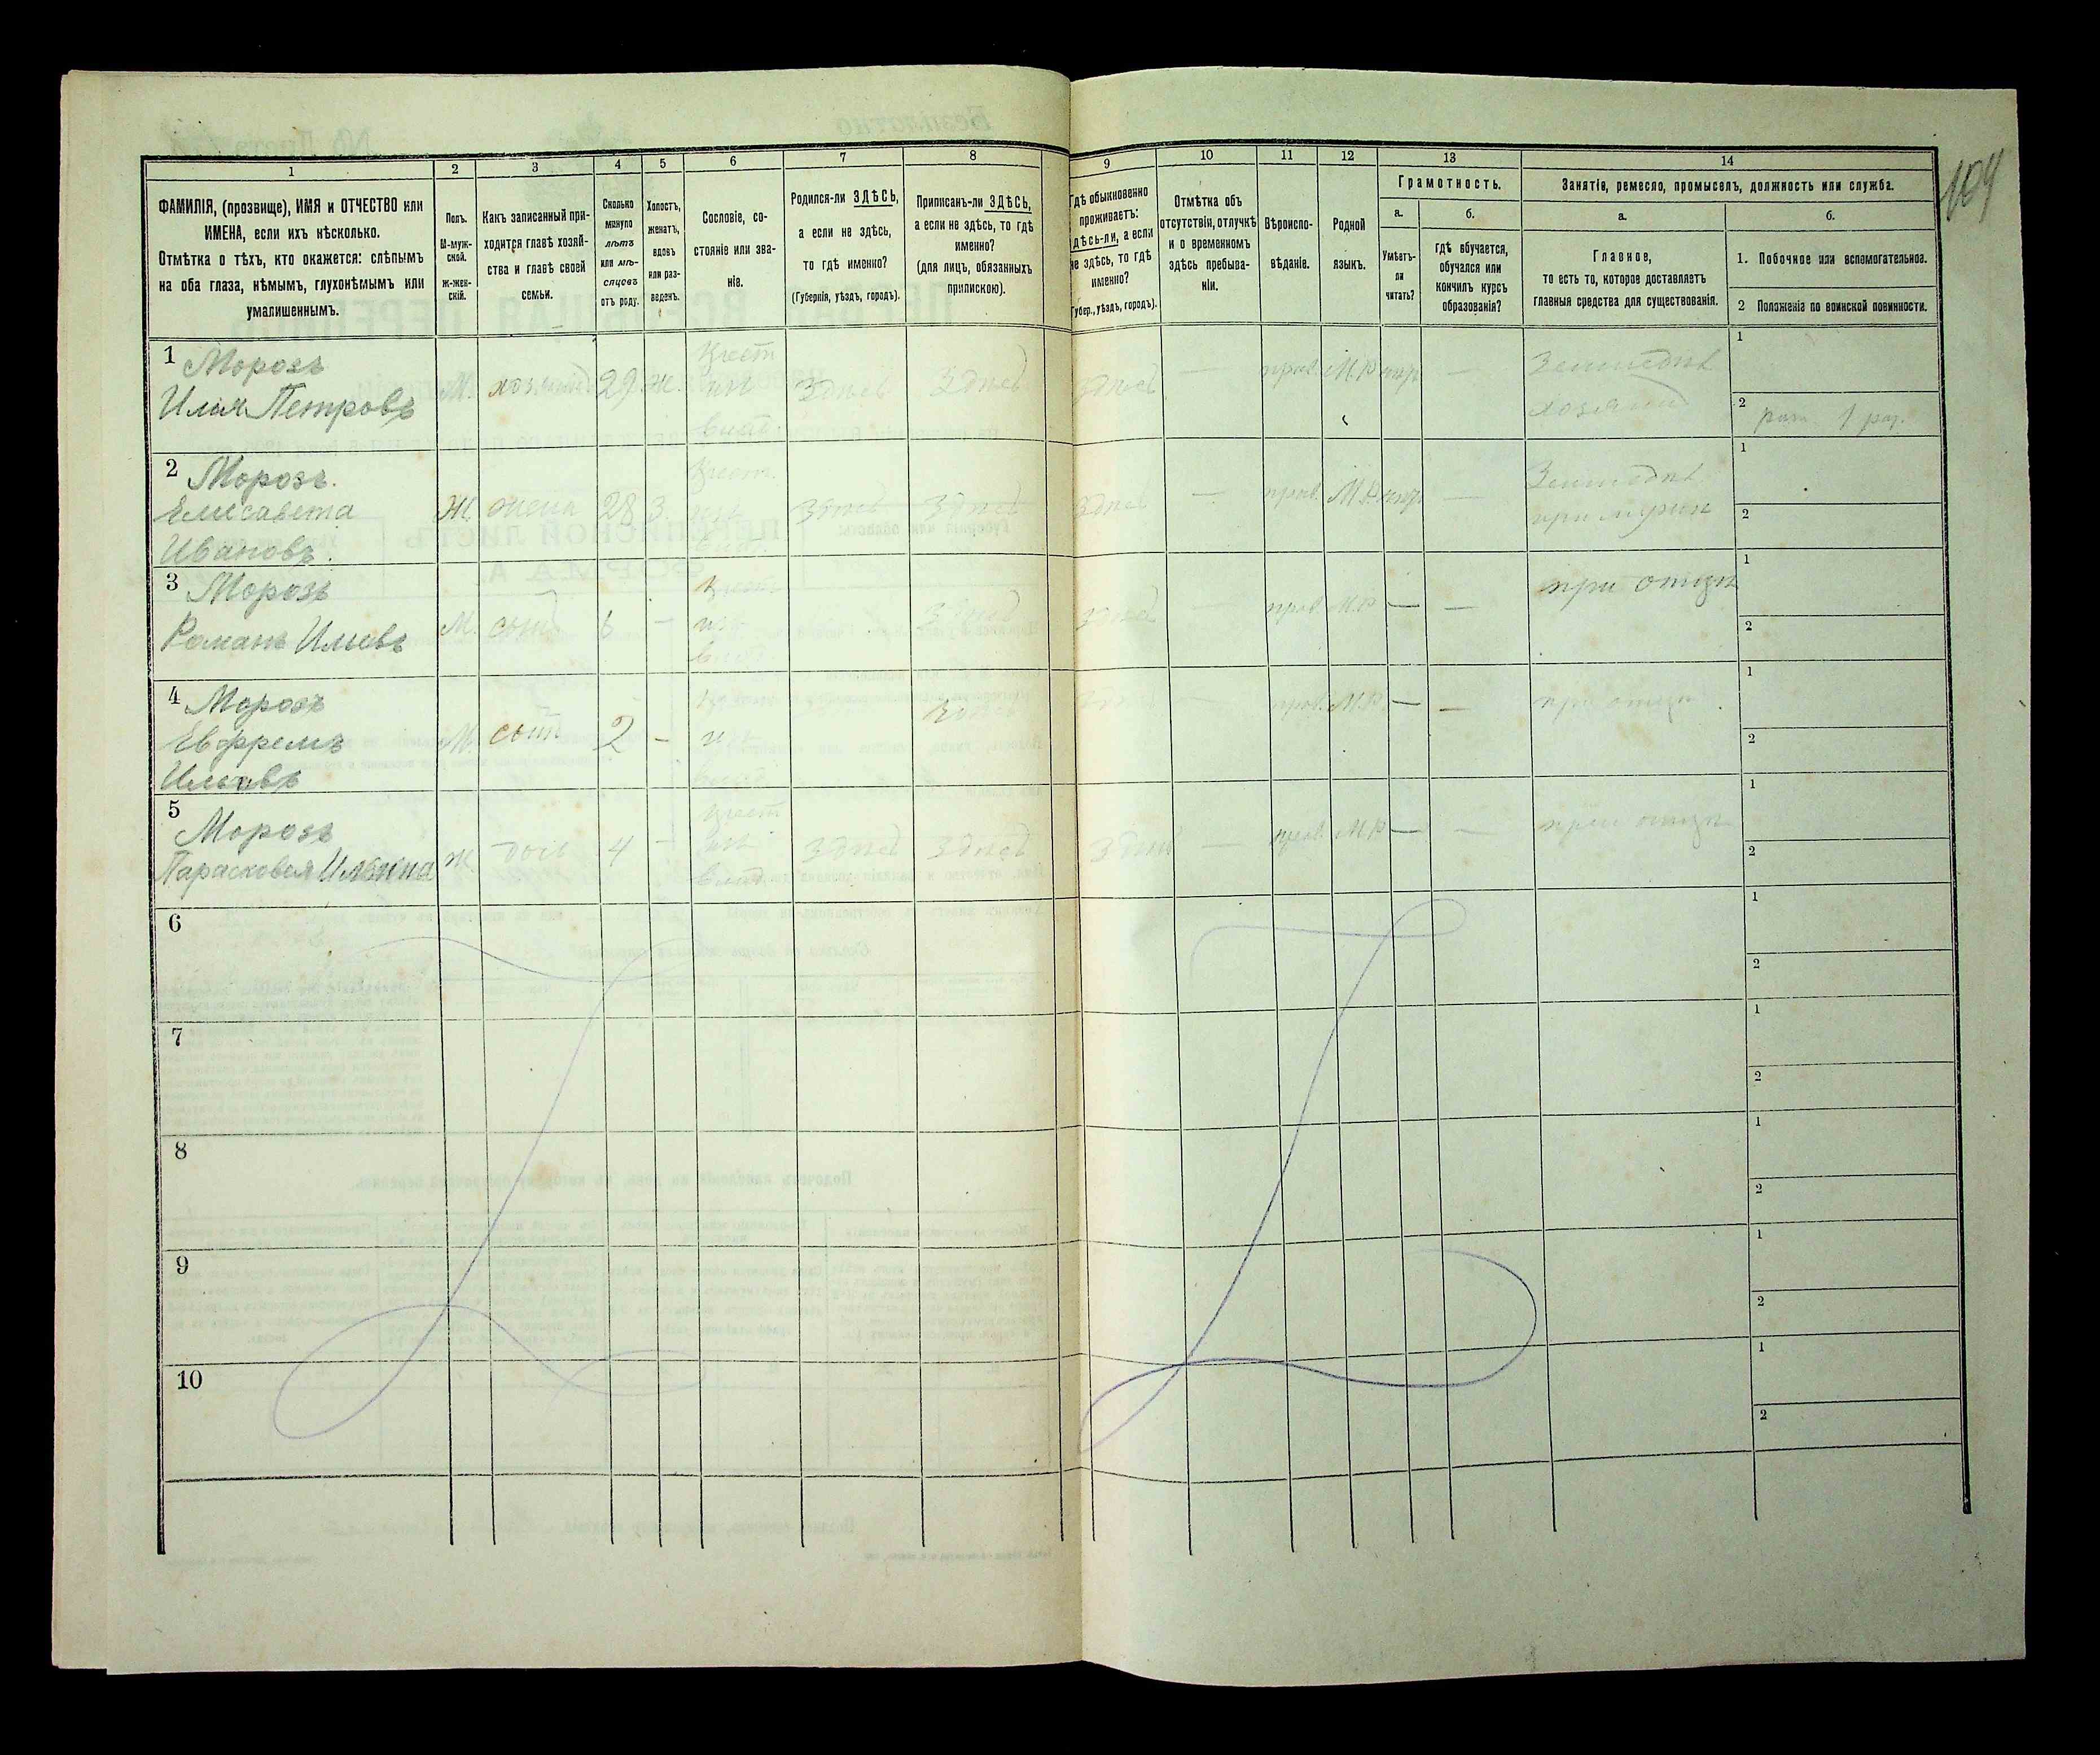 104
1
2
3
4
5
6
7
8
9
10
11
12
13
14
ФАМИЛІЯ, (прозвище), ИМЯ и ОТЧЕСТВО или
ИМЕНА, если ихъ нѣсколько.
Отмѣтка о тѣхъ, кто окажется: слѣпымъ
на оба глаза, нѣмымъ, глухонѣмымъ или
умалишеннымъ.
Полъ.
М-муж-
ской.
Ж-жен-
скій.
Какъ записанный при-
ходится главѣ хозяй-
ства и главѣ своей
семьи.
Сколько
минуло
лѣтъ
или мѣ-
сяцовъ
отъ роду.
Холостъ,
женатъ,
вдовъ
или раз-
веденъ.
Сословіе, со-
стояніе или зва-
ніе.
Родился-ли ЗДѢСЬ,
а если не здѣсь,
то гдѣ именно?
(Губернія, уѣздъ, городъ).
Приписанъ-ли ЗДѢСЬ,
а если не здѣсь, то гдѣ
именно?
(для лицъ, обязанныхъ
припискою).
Гдѣ обыкновенно
проживаетъ:
здѣсь-ли, а если
не здѣсь, то гдѣ
именно?
(Губер., уѣздъ, городъ).
Отмѣтка объ
отсутствіи, отлучкѣ
и о временномъ
здѣсь пребыва-
ніи.
Вѣроиспо-
вѣданіе.
Родной
языкъ.
Грамотность.
а.
б.
Умѣетъ-
ли
читать?
гдѣ обучается,
обучался или
кончилъ курсъ
образованія?
Занятіе, ремесло, промыселъ, должность или служба.
а.
б.
Главное,
то есть то, которое доставляетъ
главныя средства для существованія.
1. Побочное или вспомогательное.
2 Положеніе по воинской повинности.
1 Морозъ
Илия Петровъ
М. хозяинъ 29 ж.
Крест
изъ
влад.
Здѣсь Здѣсь здѣсь — прав. М.Р. —
Земледѣл
хозяинъ
1
2
2 Морозъ.
Елисавета
Ивановъ.
Ж. жена 28 з.
Крест.
изъ
Здѣсь Здѣсь здѣсь — прав. М.Р. —
Земледѣл
при мужѣ
1
2
3 Морозъ
Романъ Ильевъ
М. сынъ 6 —
Крест
изъ
Здѣсь здѣсь — прав М.Р — —
при отцѣ
1
2
4 Морозъ
Евфремъ
Ильевъ
М. сынъ 2 —
Здѣсь — прав. М.Р. — —
при отцѣ
1
2
5
Морозъ
Парасковея Ильина
ж. дочь 4 —
Крест
изъ
влад.
Здѣсь Здѣсь Здѣсь — прав. М.Р — —
при отцѣ
1
2
6
1
2
7
1
2
8
1
2
9
1
2
10
1
2